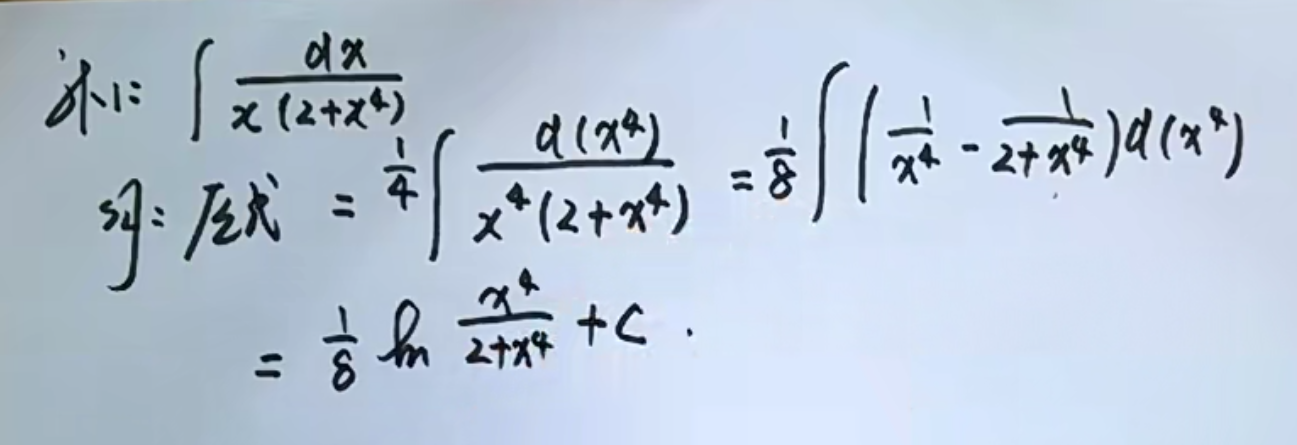 补1: ∫ dx / x(2+x⁴)
解: 原式 = 1/4 ∫ d(x⁴) / x⁴(2+x⁴) = 1/8 ∫ (1/x⁴ - 1/(2+x⁴)) d(x⁴)
= 1/8 ln x⁴/(2+x⁴) + C .